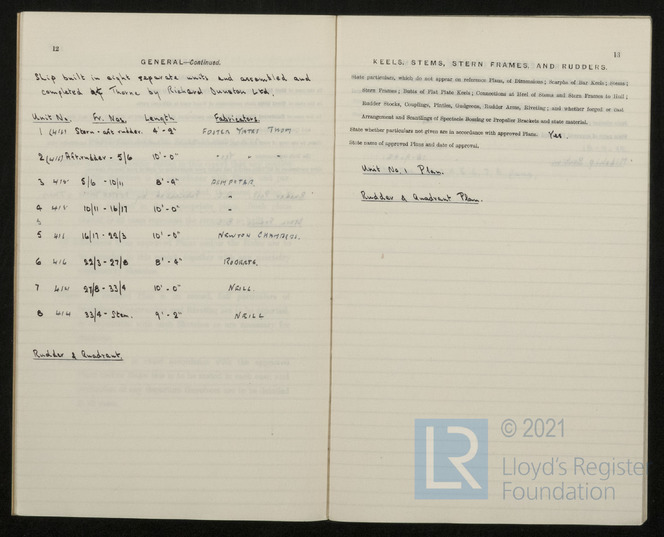 12
GENERAL—Continued.
Ship built in eight separate units and assembled and
completed at Thorne by Richard Dunston Ltd.
Unit No. Fr. Nos. Length Fabricators.
1 Stern - aft rudder. 4' - 2" FOSTER YATES THOM
2 Aft. rudder - 5/6 10' - 0" " " "
3 5/6 - 10/11 8' - 9" DEMPSTER
4 10/11 - 16/17 10' - 0" "
5 16/17 - 22/3 10' - 0" NEWTON CHAMBERS.
6 22/3 - 27/8 8' - 4" ROBERTS.
7 27/8 - 33/4 10' - 0" NEILL.
8 33/4 - Stem. 9' - 2" NEILL
Rudder & Quadrant.
13
KEELS, STEMS, STERN FRAMES, AND RUDDERS.
State particulars, which do not appear on reference Plans, of Dimensions; Scarphs of Bar Keels; Stems;
Stern Frames; Butts of Flat Plate Keels; Connections at Heel of Stems and Stern Frames to Hull;
Rudder Stocks, Couplings, Pintles, Gudgeons, Rudder Arms, Riveting; and whether forged or cast
Arrangement and Scantlings of Spectacle Bossing or Propeller Brackets and state material.
State whether particulars not given are in accordance with approved Plans. Yes.
State names of approved Plans and date of approval.
Unit No. 1 Plan.
Rudder & Quadrant Plan.
LR
© 2021
Lloyd's Register
Foundation